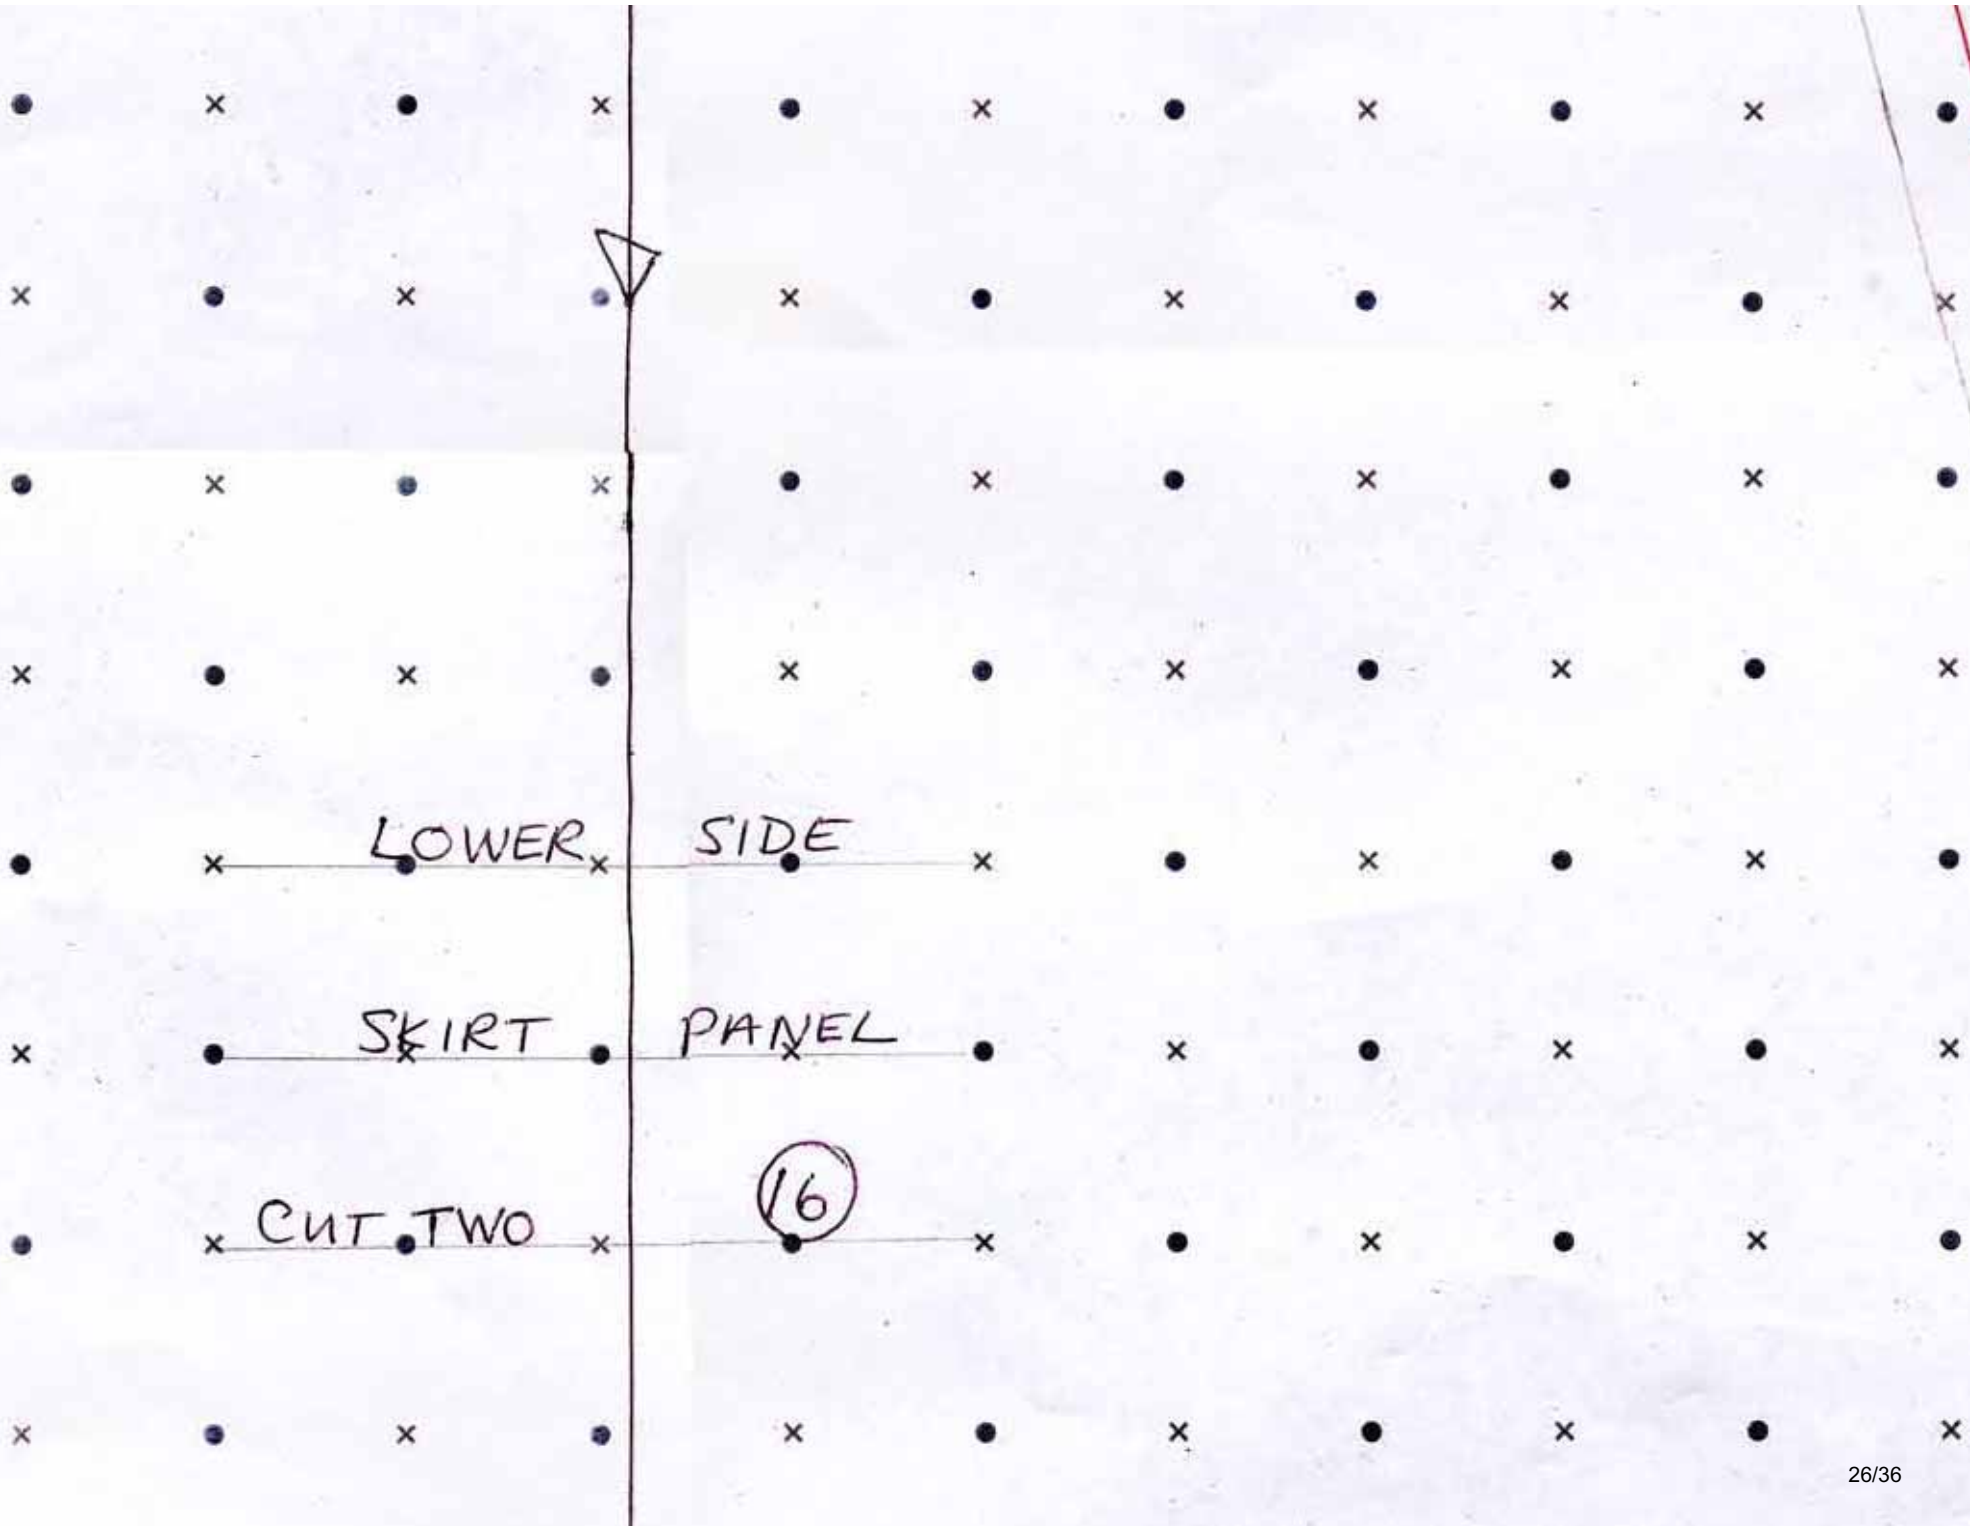 LOWER SIDE
SKIRT PANEL
CUT TWO 16
26/36